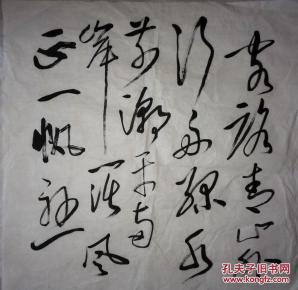 客路青山外
行舟绿水
前潮平两
岸阔风
正一帆悬
孔夫子旧书网